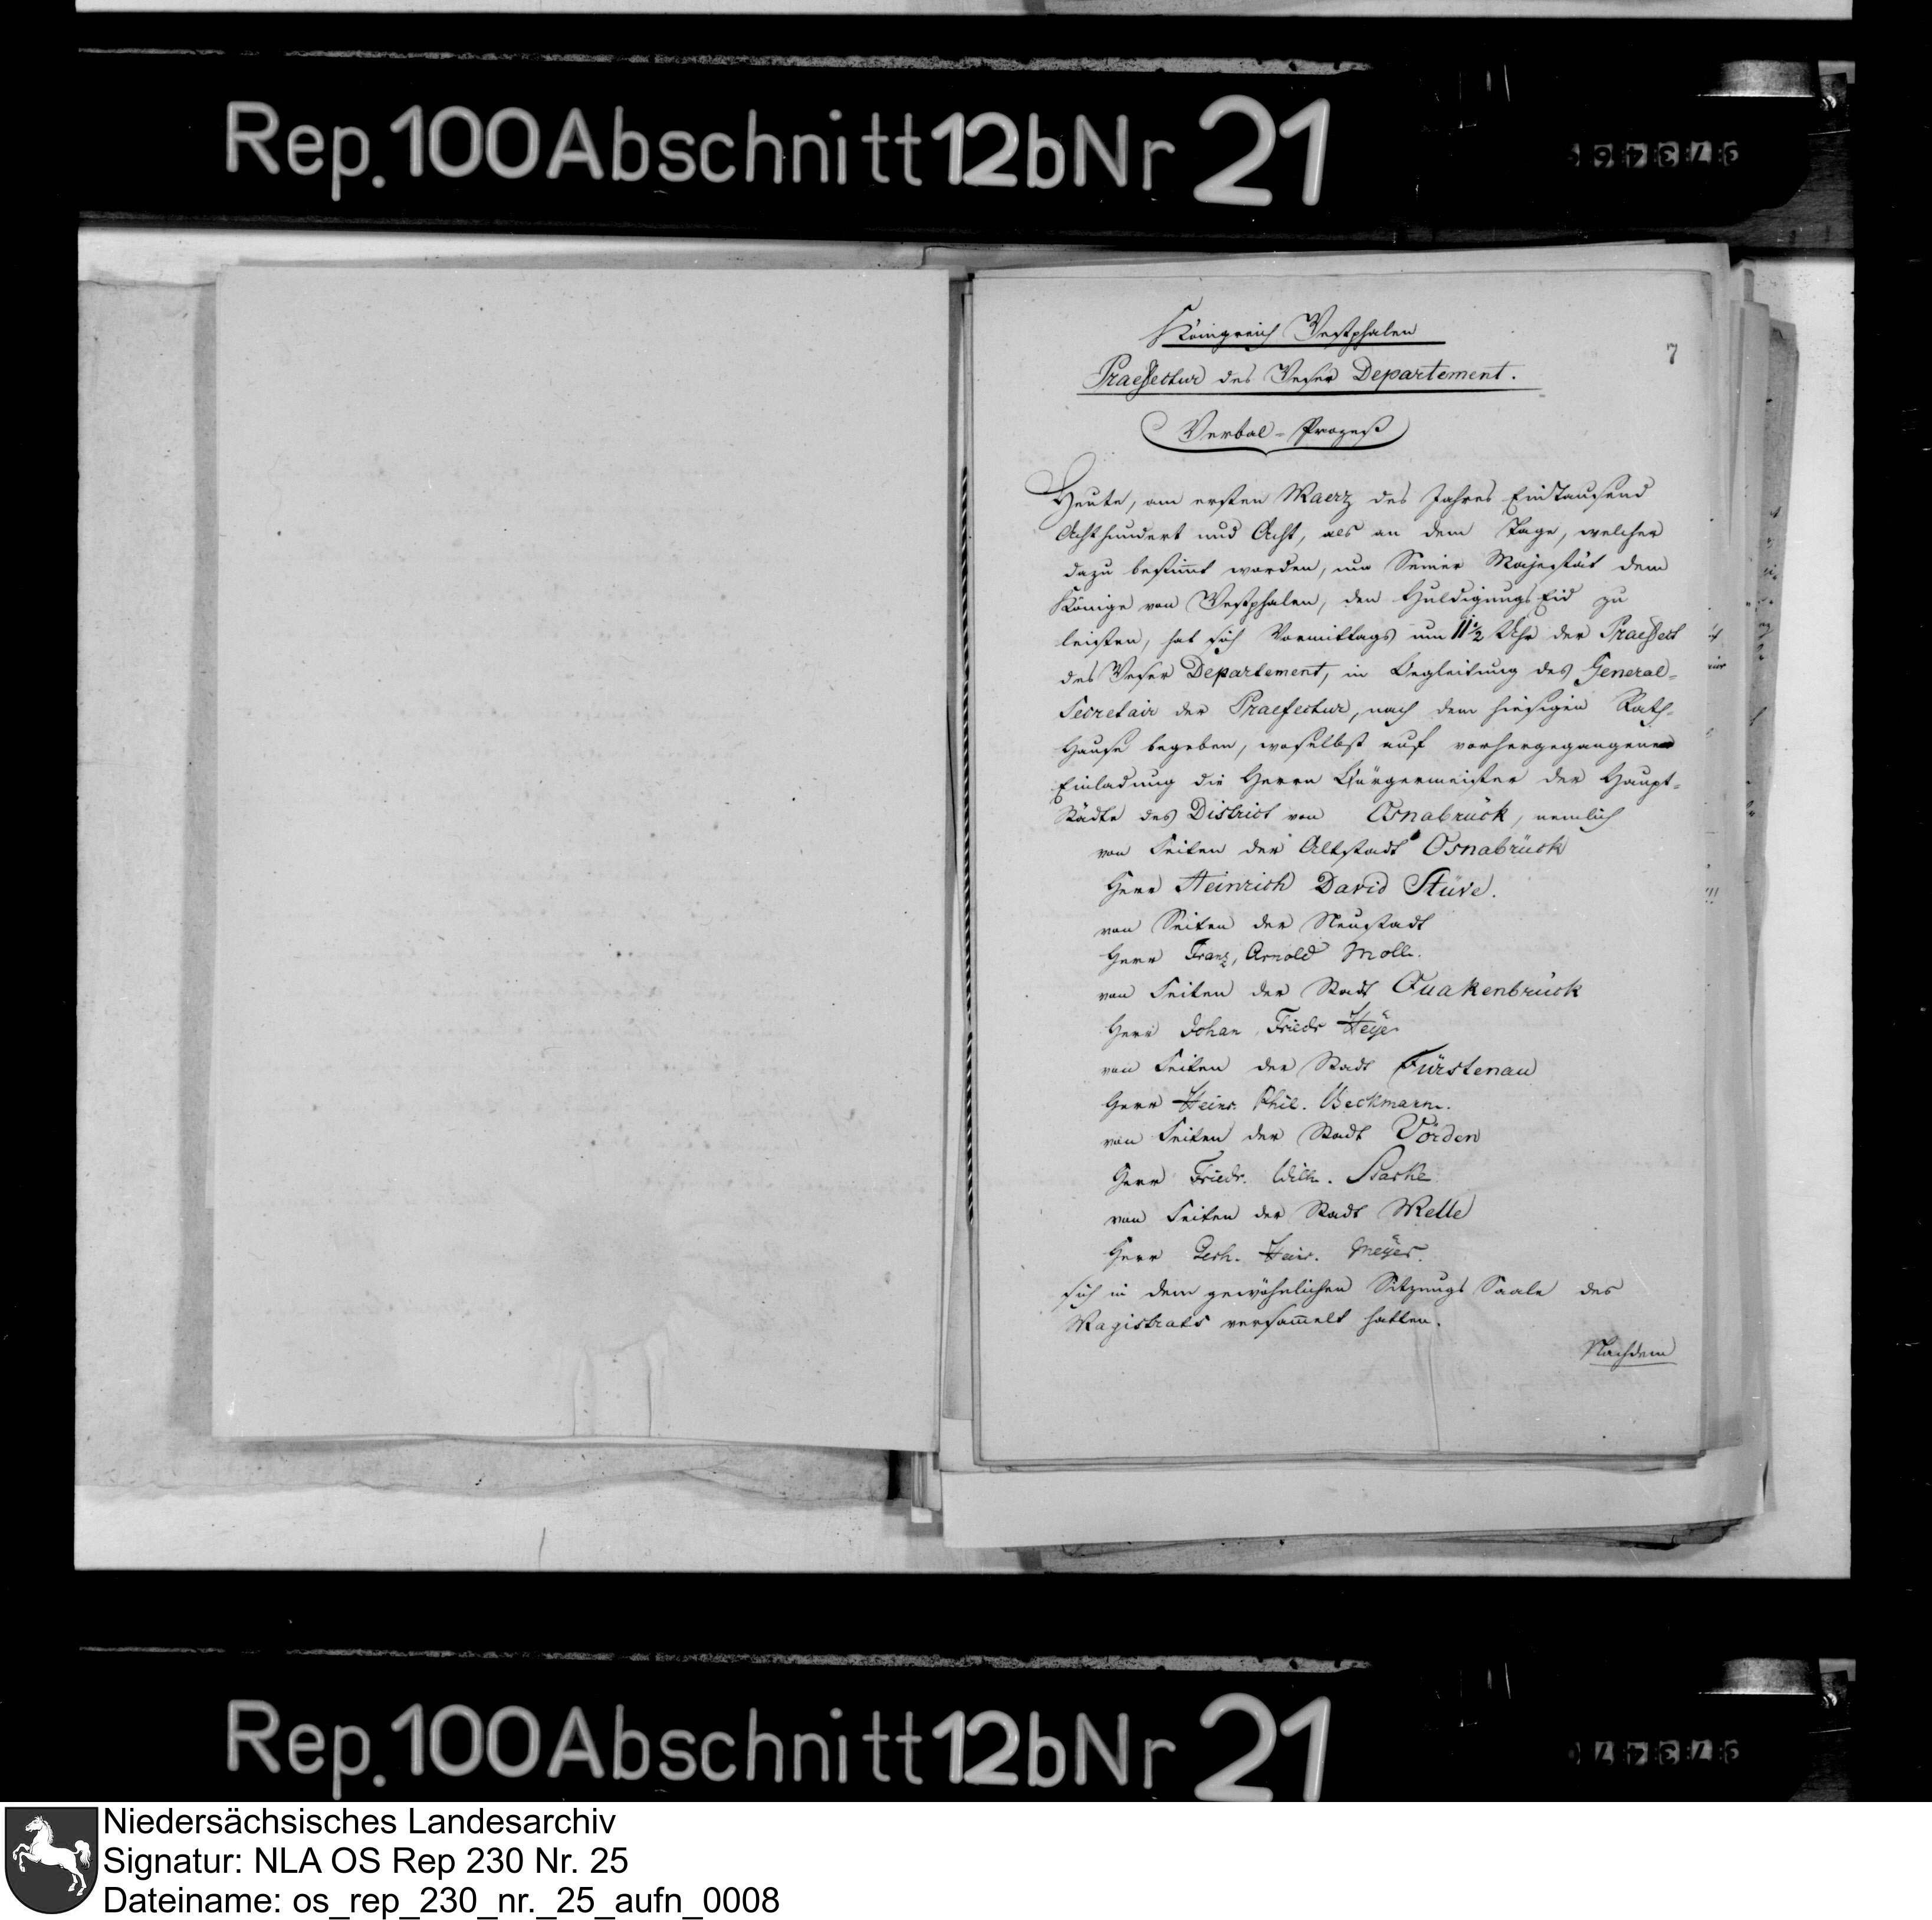 Rep. 100 Abschnitt 12b Nr 21
97346
7
Königreich Westphalen
Praefectur des Weser Departement.
Verbal-Prozeß
Heute, am ersten Maerz des Jahres Eintausend
Achthundert und Acht, als an dem Tage, welcher
dazu bestimt worden, um Seiner Majestät dem
Könige von Westphalen, den Huldigungs Eid zu
leisten, hat sich Vormittags um 11 1/2 Uhr der Praefect
des Weser Departement, in Begleitung des General-
Secretair der Praefectur, nach dem hiesigen Rath-
Hause begeben, woselbst auf vorhergegangene
Einladung die Herrn Bürgermeister der Haupt-
Städte des District von Osnabrück, nemlich
von Seiten der Altstadt Osnabrück
Herr Heinrich David Stüve.
von Seiten der Neustadt
Herr Franz, Arnold Moll.
von Seiten der Stadt Quakenbrück
Herr Johan Friedr Heye
von Seiten der Stadt Fürstenau
Herr Heinr. Phil. Beckmann.
von Seiten der Stadt Vörden
Herr Friedr. Wilh.
von Seiten der Stadt Melle
Herr Gerh. Heinr. Meyer.
sich in dem gewöhnlichen Sitzungs Saale des
Magistrats versamelt hatten.
Nachdem
Rep. 100 Abschnitt 12b Nr 21
97347
Niedersächsisches Landesarchiv
Signatur: NLA OS Rep 230 Nr. 25
Dateiname: os_rep_230_nr._25_aufn_0008